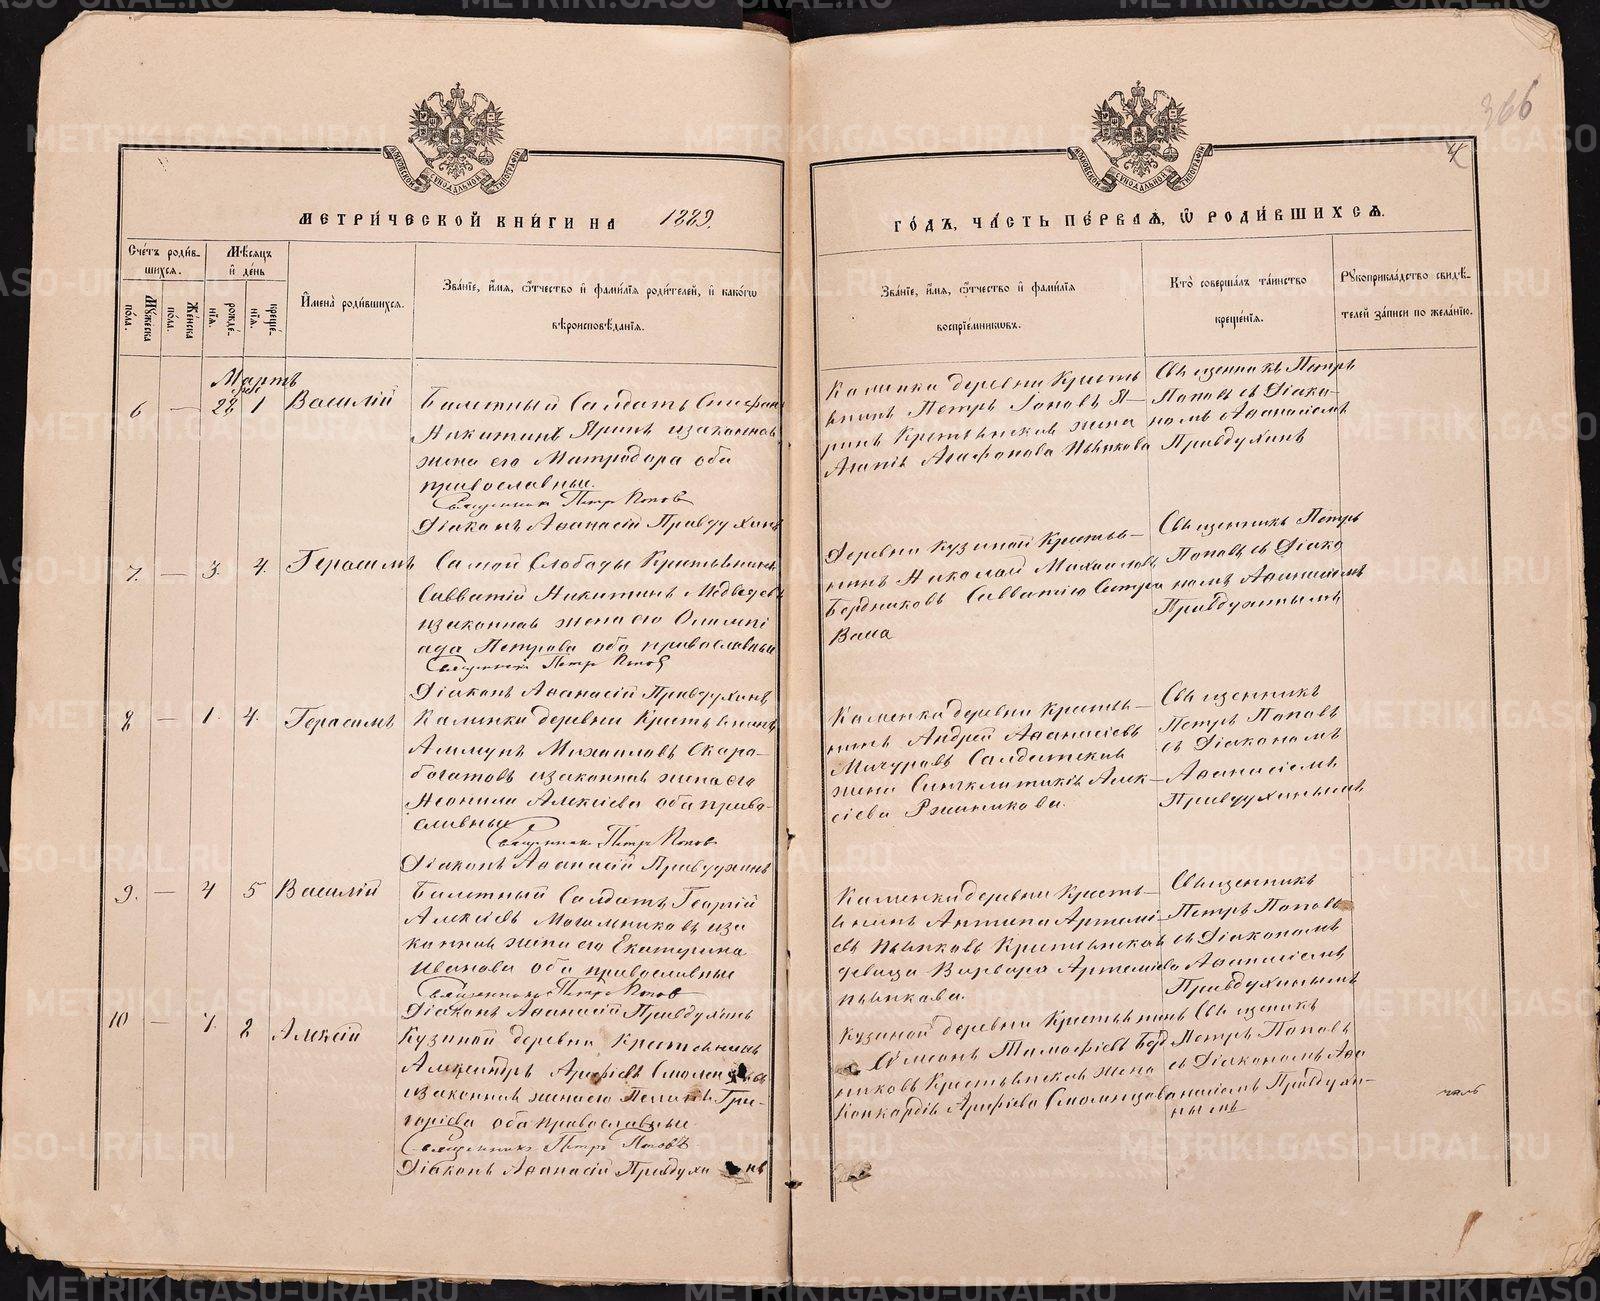 366
4
МОСКОВСКОЙ СѴНОДАЛЬНОЙ ТИПОГРАФІИ
МОСКОВСКОЙ СѴНОДАЛЬНОЙ ТИПОГРАФІИ
МЕТРИ́ЧЕСКОЙ КНИ́ГИ НА 1889.
ГО́ДЪ, ЧА́СТЬ ПЕ́РВАѦ, Ѡ РОДИ́ВШИХСѦ.
Сче́тъ роди́в-
шихсѧ.
Мꙋжеска по́ла.
Же́нска по́ла.
Мѣ́сѧцъ
и҆ де́нь
рожде́-
нїѧ.
креще́-
нїѧ.
И҆мена̀ роди́вшихсѧ.
Зва́нїе, и҆́мѧ, ѻ҆́тчество и҆ фами́лїѧ роди́телей, и҆ како́гѡ
вѣроисповѣ́данїѧ.
Зва́нїе, и҆́мѧ, ѻ҆́тчество и҆ фами́лїѧ
воспрїе́мникѡвъ.
Кто̀ соверша́лъ та́инство
креще́нїѧ.
Рꙋкоприкла́дство свидѣ́-
телей за́писи по жела́нїю.
Мартъ
6 — 28 1 Василій
Билетный Салдатъ Стефанъ
Никитинъ Яринъ изаконная
жена его Матродора оба
православные.
Священникъ Петръ Поповъ
Діаконъ Аѳанасій Правдухинъ
Каменки деревни Кресть
янинъ Петръ Іоновъ Я-
ринъ Крестьянская жена
Агапія Агафонова Пьянкова
Священникъ Петръ
Поповъ съ Діако-
номъ Аѳанасіемъ
Правдухинъ
7. — 3. 4. Герасимъ
Самой Слободы Крестьянинъ
Савватій Никитинъ Медведевъ
изаконная жена его Олимпі
ада Петрова оба православные
Священникъ Петръ Поповъ
Діаконъ Аѳанасій Правдухинъ
Деревни Кузиной Крестья-
нинъ Николай Михаиловъ
Бердниковъ Савватію Сестра
Васса
Священникъ Петръ
Поповъ съ Діако
номъ Аѳанасіемъ
Правдухинымъ
8 — 1. 4. Герасимъ
Каменки деревни Крестьянинъ
Михаиловъ Скоро-
богатовъ изаконная жена его
Неонила Алексіева оба право-
славные
Священникъ Петръ Поповъ
Діаконъ Аѳанасій Правдухинъ
Каменки деревни Кресть-
нинъ Андрей Аѳанасіевъ
Мичуровъ Салдатская
жена Синклитикія Алек-
сіева
Священникъ
Петръ Поповъ
съ Діакономъ
Аѳанасіемъ
Правдухинымъ
9. — 4 5 Василій
Билетный Салдатъ Георгій
Алексіевъ Могильниковъ иза
конная жена его Екатерина
Иванова оба православные
Священникъ Петръ Поповъ
Діаконъ Аѳанасій Правдухинъ
Каменки деревни Кресть-
янинъ Антипа Артемі-
евъ Пьянковъ Крестьянская
девица Варвара Артемієва
Пьянкова.
Священникъ
Петръ Поповъ
съ Діакономъ
Аѳанасіемъ
Правдухинымъ
10 — 7. 8 Алексій
Кузиной деревни Крестьянинъ
Александръ Арефіевъ
изаконная жена его Пелагія Гри-
горіева оба православные.
Священникъ Петръ Поповъ
Діаконъ Аѳанасій Правдухинъ
Кузиной деревни Крестьянинъ
Сѵмеонъ Тимофіевъ Берд
никовъ Крестьянская жена
Конкордія Арефіева Смоленцова
Священникъ
Петръ Поповъ
съ Діакономъ Аѳа
насіемъ Правдухи-
нымъ